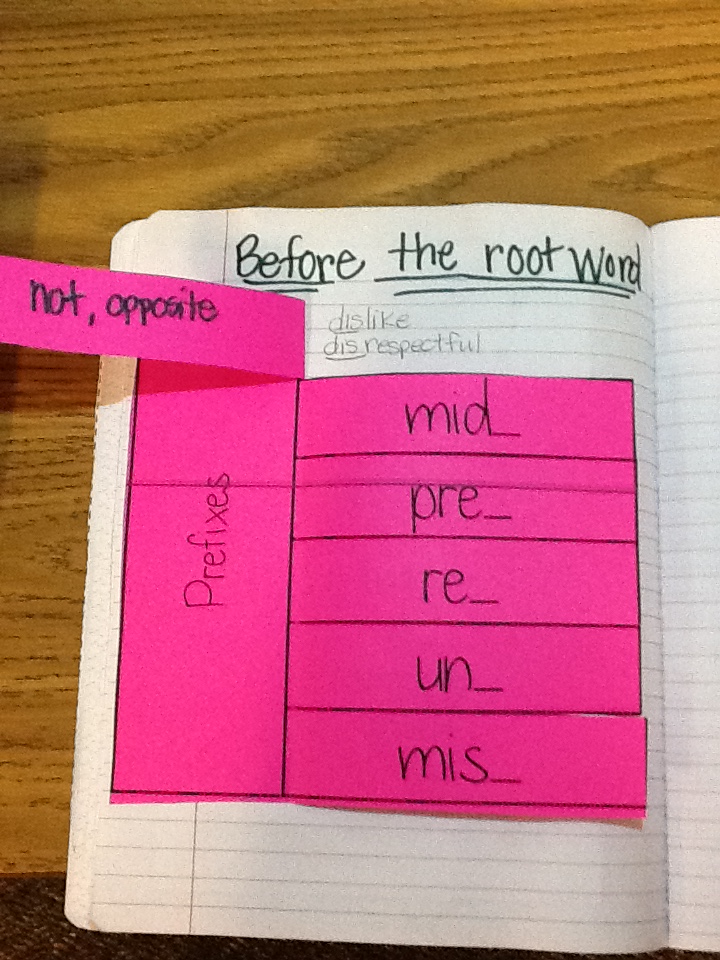 Before the root word
not, opposite
dislike
disrespectful
Prefixes
mid_
pre_
re_
un_
mis_